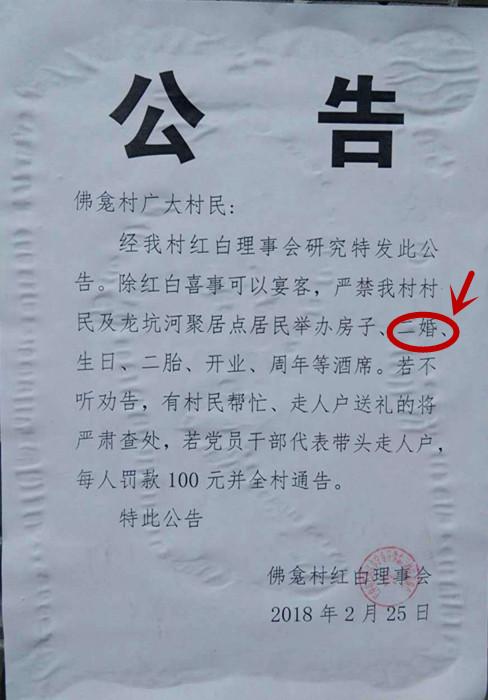 公 告
佛龛村广大村民：
经我村红白理事会研究特发此公
告。除红白喜事可以宴客，严禁我村村
民及龙坑河聚居点居民举办房子、二婚、
生日、二胎、开业、周年等酒席。若不
听劝告，有村民帮忙、走人户送礼的将
严肃查处，若党员干部代表带头走人户，
每人罚款 100 元并全村通告。
特此公告
佛龛村红白理事会
2018 年 2 月 25 日